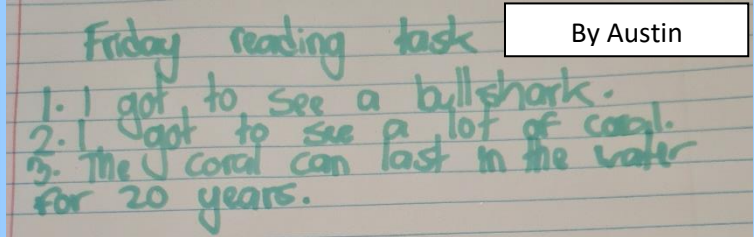 Friday reading task
By Austin
1. I got to see a bullshark.
2. I got to see a lot of coral.
3. The coral can last in the water
for 20 years.